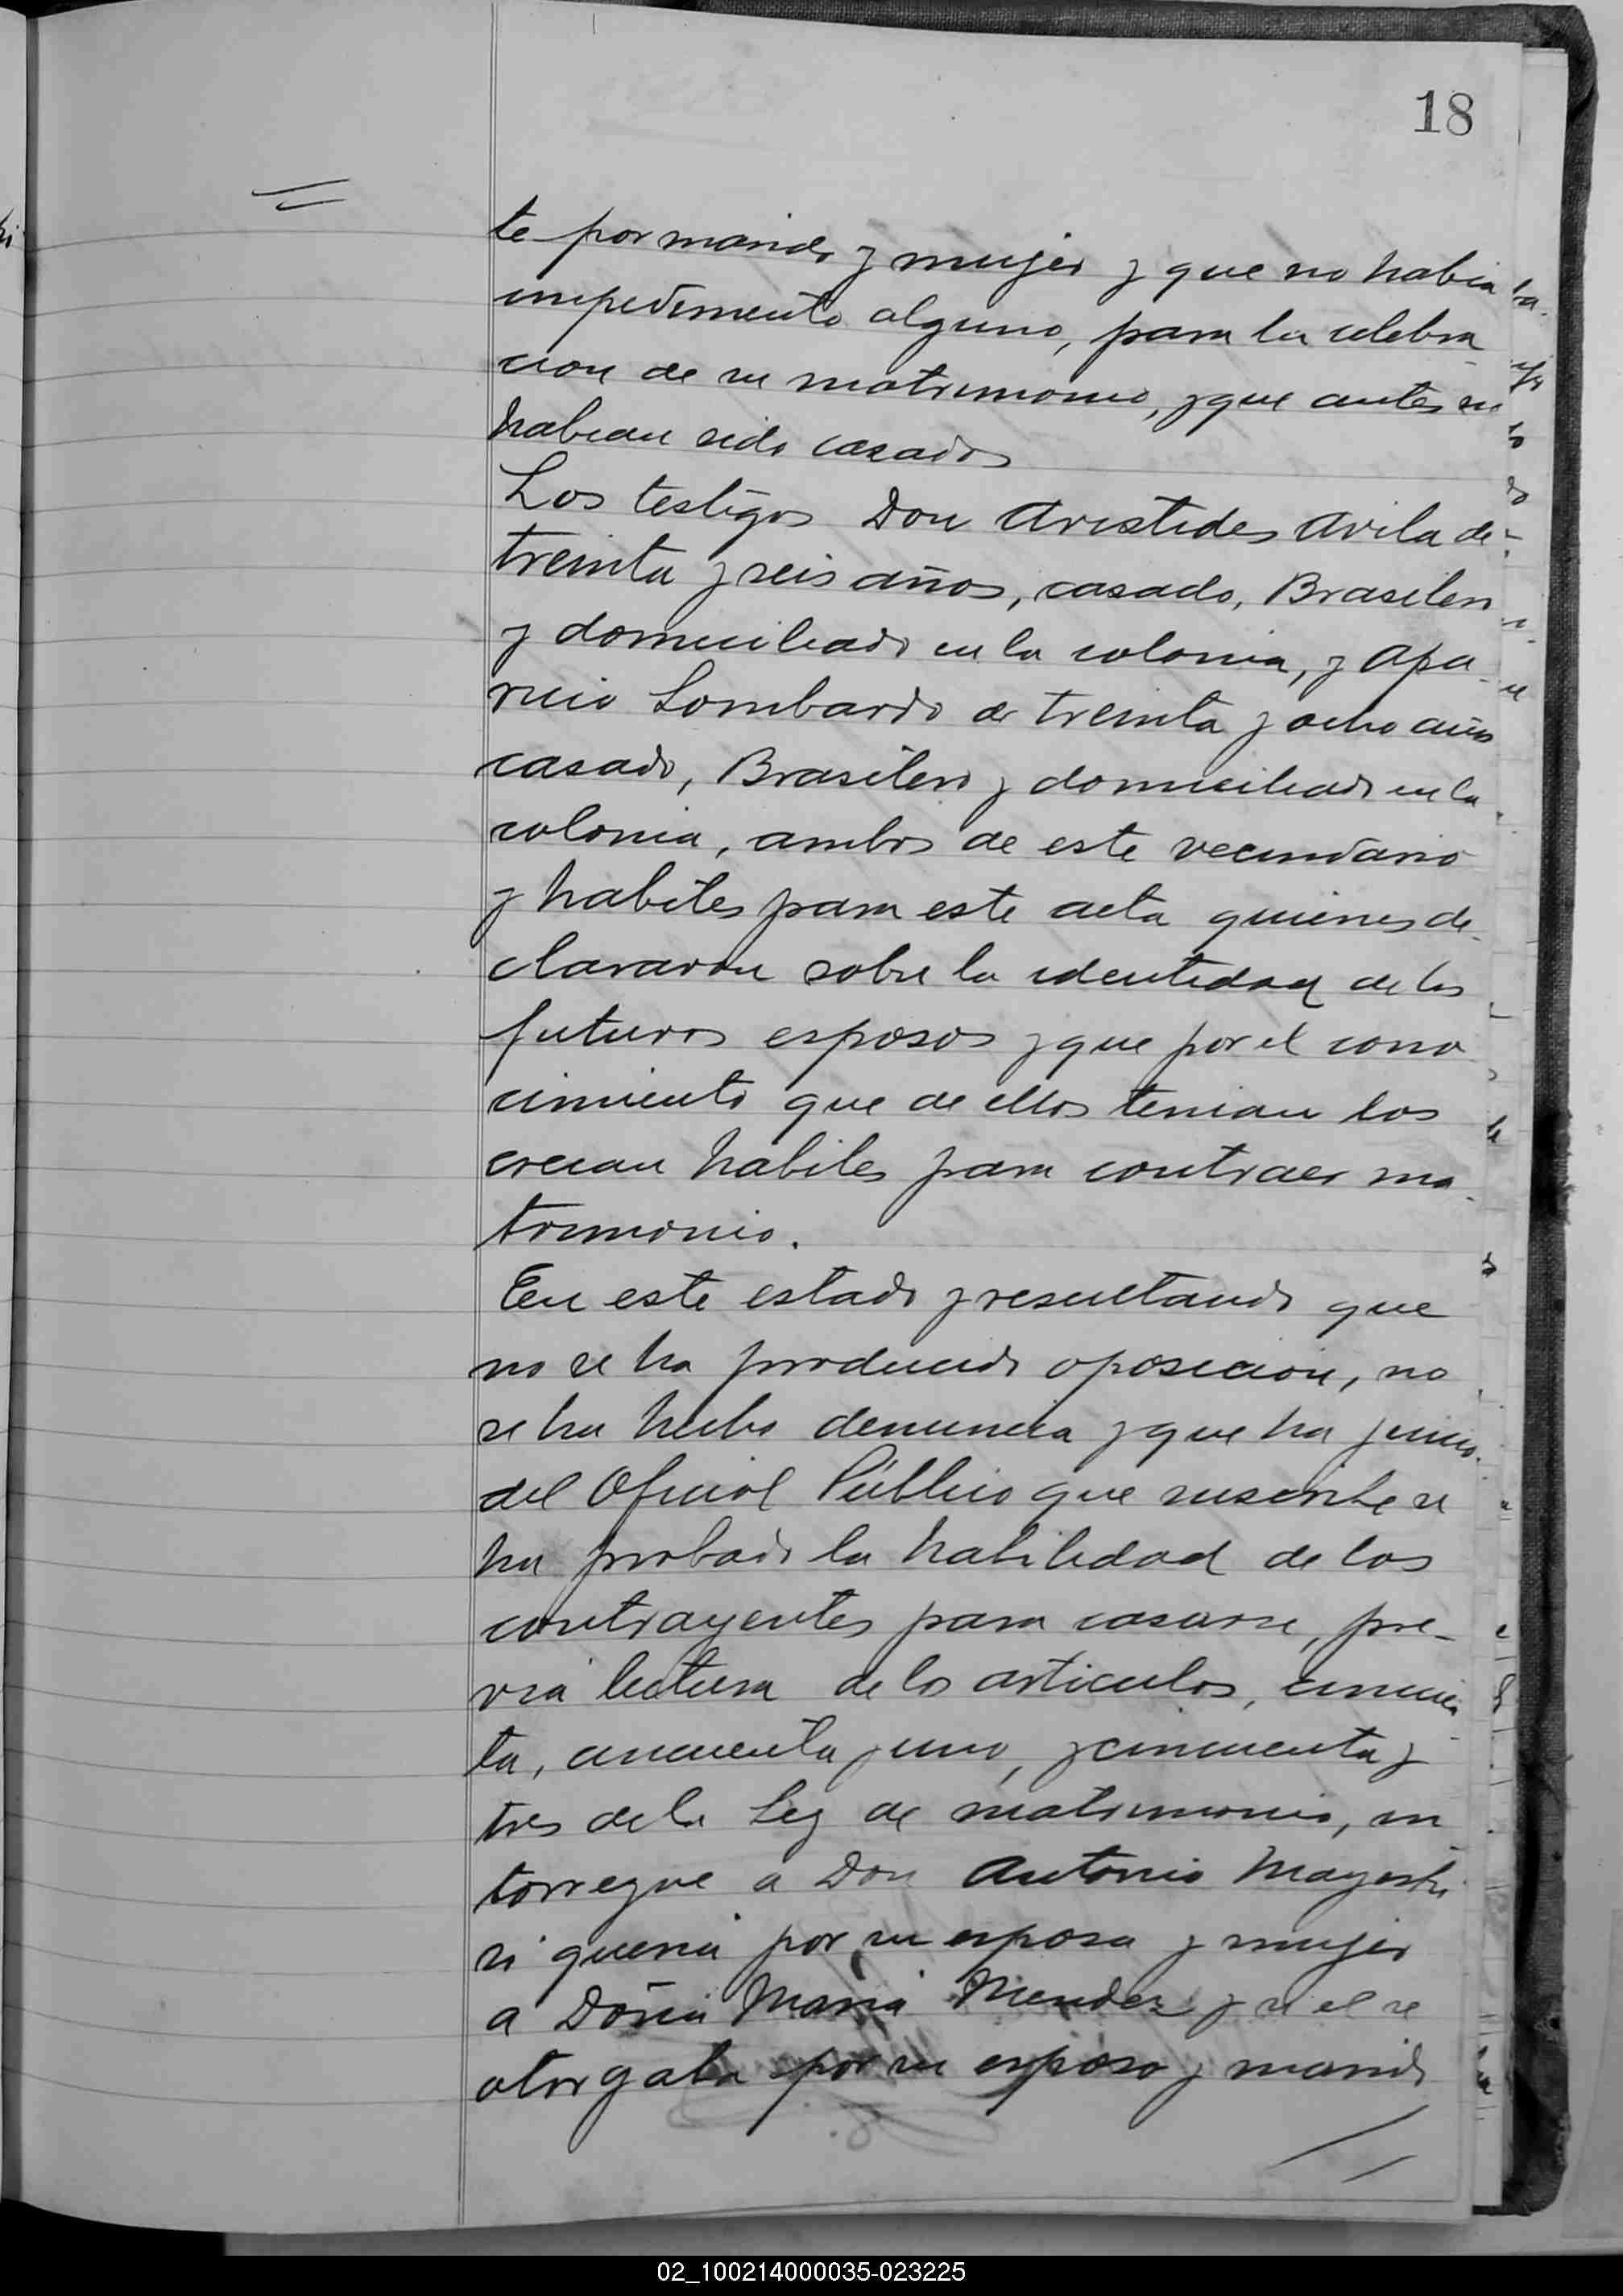 18
te por marido y mujer y que no habia
impedimento alguno, para la celebra
cion de su matrimonio, y que antes no
habian sido casados
Los testigos Don Aristides Avila de
treinta y seis años, casado, Brasilero
y domiciliado en la colonia, y Apa
ricio Lombardo de treinta y ocho años
casado, Brasilero y domiciliado en la
colonia, ambos de este vecindario
y habiles para este acta quienes de
clararon sobre la identidad de los
futuros esposos y que por el cono
cimiento que de ellos tenian los
creian habiles para contraer ma
trimonio.
En este estado y resultando que
no se ha producido oposicion, no
se ha hecho denuncia y que ha juicio
del Oficial Público que suscribe se
ha probado la habilidad de los
contrayentes para casarse, pre-
via lectura de los articulos, cincuen
ta, cincuenta y uno, y cincuenta y
tres de la Ley de matrimonio, in
torregue a Don Antonio Mayestri
si queria por su esposa y mujer
a Doña Maria Mendez y si el se
otorgaba por su esposo y marido
02_100214000035-023225